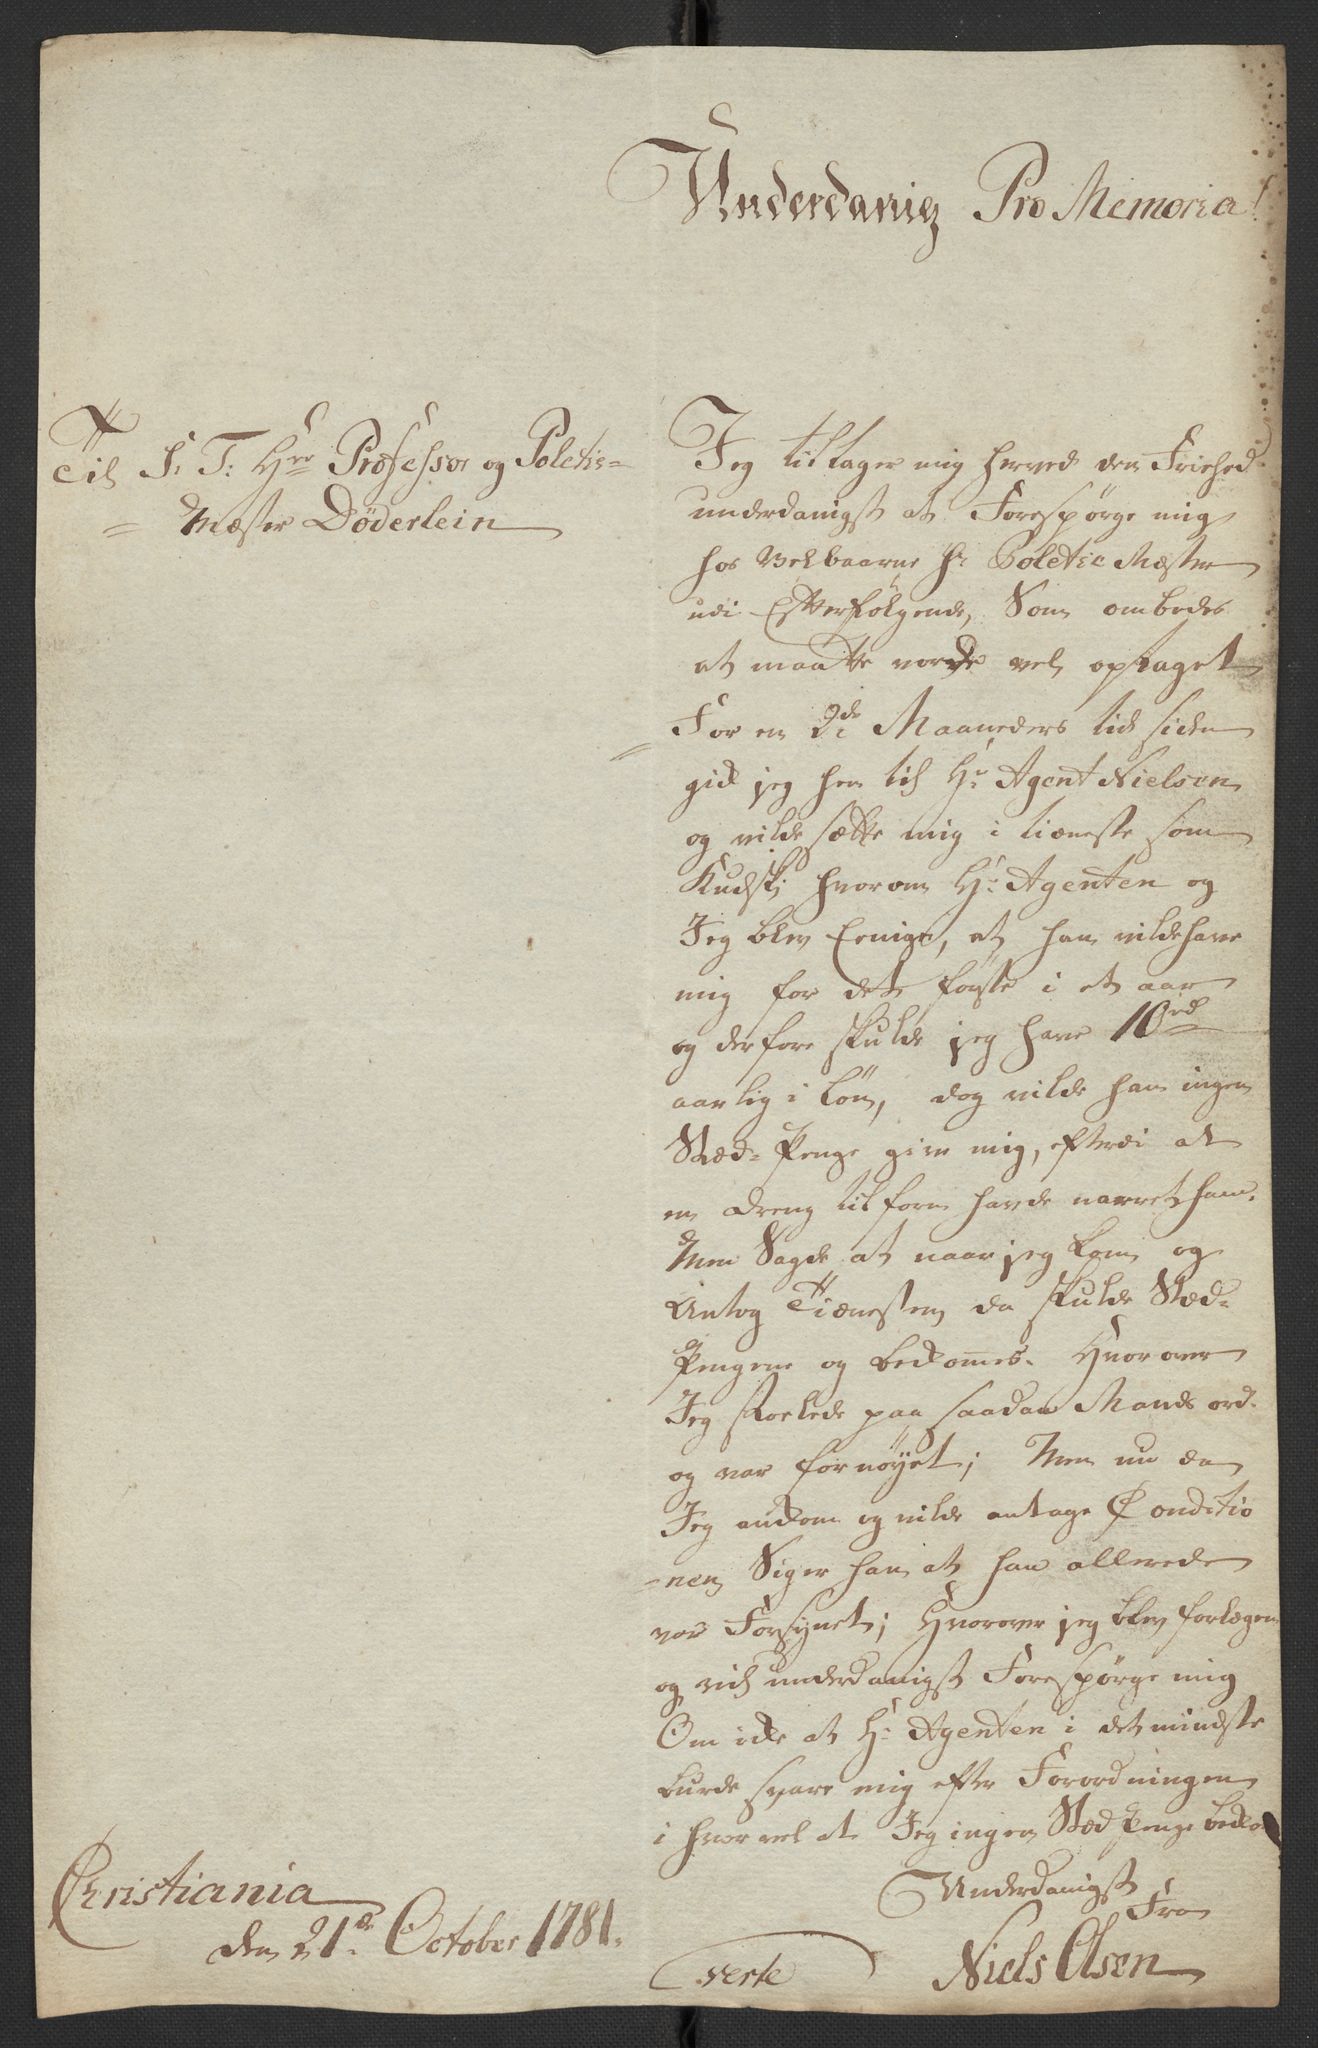 Underdanig Pro Memoria!
Til S: T: Hrr Professor og Poletie=
= Mæster Döderlein
Jeg tiltager mig herved den Friehed
underdanigst at Forespörge mig
hos Velbaarne Hr Poletie Mæster
udi Efterfölgende, Som ombedes
at maatte vorde vel optaget
For en 2de Maaneders tid siden
gik jeg hen til Hr: Agent Nielsen
og vilde sætte mig i tieneste som
Kudsk; hvorom Hr: Agenten og
Jeg blev Eenige, at han vilde have
mig for det förste i et aar
og derfore skulde jeg have 10rd
aarlig i Lön, dog vilde han ingen
Stæd=Penge give mig, efterdi at
en dreng tilforn havde narret ham.
Men Sagde at naar jeg kom og
Antog Tienesten da skulde Stæd=
Pengene og bekommes. Hvorover
Jeg stoelede paa saadan Mands ord
og var fornöyet; Men nu da
Jeg ankom og vilde antage Conditio
-nen Siger han at han allerede
var Forsynet; Hvorover jeg blev forlegen
og vil underdanigst Forespörge mig
Om icke at Hr: Agenten i det mindste
burde svare mig efter Forordningen
i hvorvel at Jeg ingen Stæd Penge
Underdanigst
Fra
Niels Olsen
verte
Christiania
den 21de October 1781.